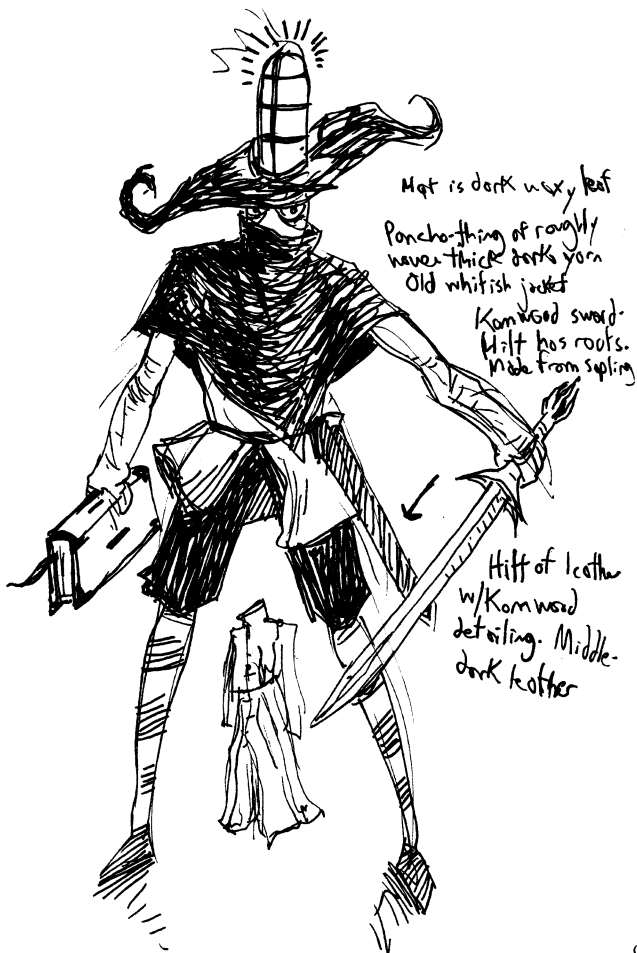 Hat is dark waxy leaf
Poncho-thing of roughly
woven thick dark yarn
Old whitish jacket
Komwood sword.
Hilt has roots.
Made from sapling
Hilt of leather
w/Komwood
detailing. Middle-
dark leather